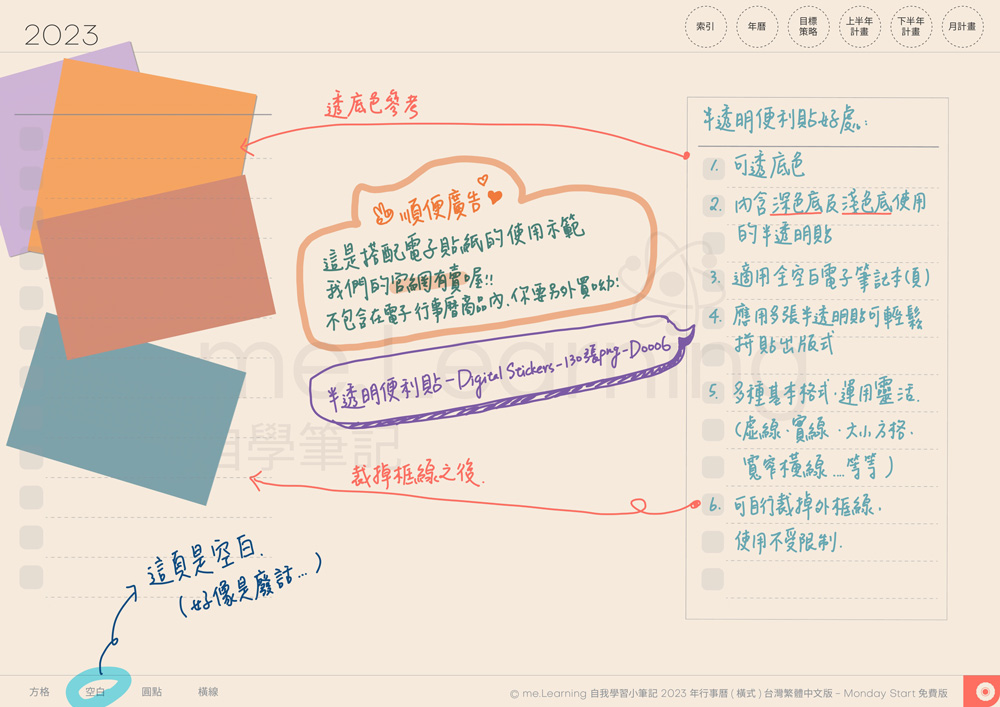 2023
索引
年曆
目標
策略
上半年
計畫
下半年
計畫
月計畫
透底色參考
順便廣告
這是搭配電子貼紙的使用示範
我們的官網有賣喔!!
不包含在電子行事曆商品內.你要另外買呦:
半透明便利貼-Digital Stickers-130張png-D0006
me.Learning
自學筆記
裁掉框線之後.
半透明便利貼好處:
1. 可透底色
2. 內含深色底及淺色底使用
的半透明貼
3. 適用全空白電子筆記本(頁)
4. 應用多張半透明貼可輕鬆
拼貼出版式
5. 多種基本格式.運用靈活.
(虛線.實線.大小方格.
寬窄橫線....等等)
6. 可自行裁掉外框線.
使用不受限制.
這頁是空白.
(好像是廢話...)
方格
空白
圓點
橫線
© me.Learning 自我學習小筆記 2023 年行事曆 ( 橫式 ) 台灣繁體中文版 - Monday Start 免費版